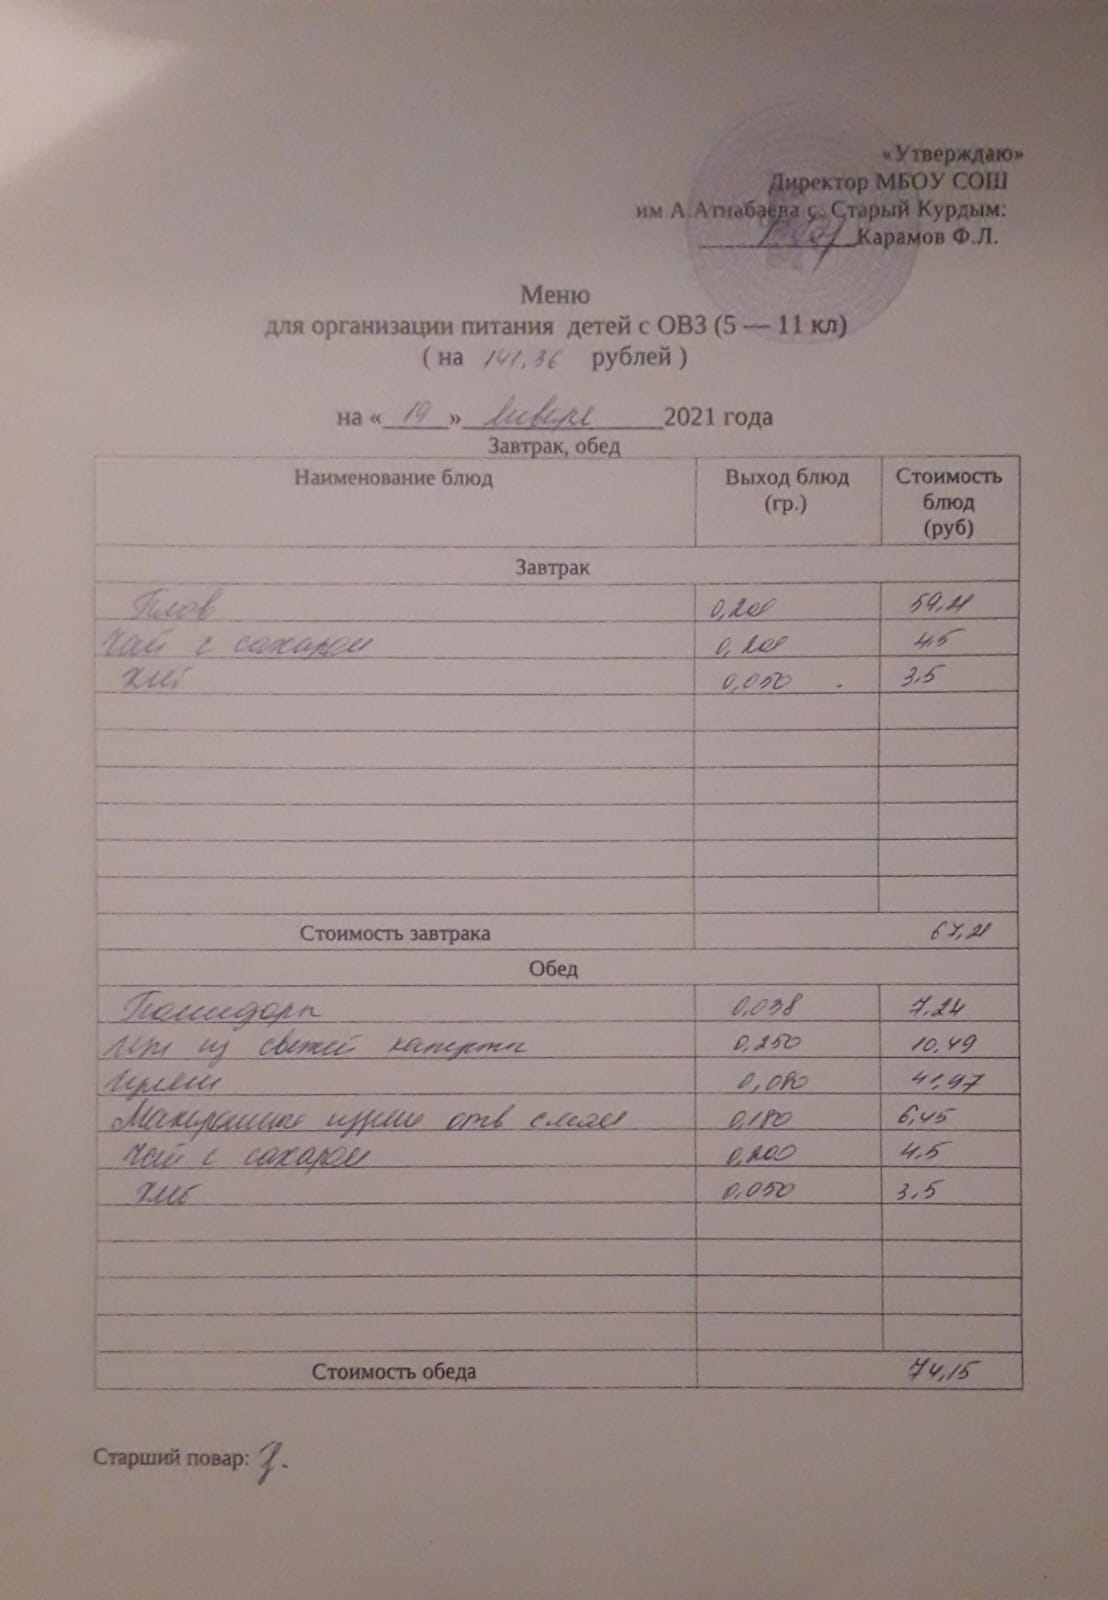 «Утверждаю»
Директор МБОУ СОШ
им.А.Атнабаева с. Старый Курдым:
Карамов Ф.Л.
Меню
для организации питания детей с ОВЗ (5 — 11 кл)
( на 141,36 рублей )
на « 19 » января 2021 года
Завтрак, обед
Наименование блюд Выход блюд (гр.) Стоимость блюд (руб)
Завтрак
Плов 0,200 59.21
Чай с сахаром 0,200 4,5
Хлеб 0,050 3,5
Стоимость завтрака 67,21
Обед
Помидоры 0,038 7,24
из свежей капусты 0,250 10,49
Гуляш 0,080 41,97
Макаронные изделия отв с маслом 0,180 6,45
Чай с сахаром 0,200 4,5
Хлеб 0,050 3,5
Стоимость обеда 74,15
Старший повар: